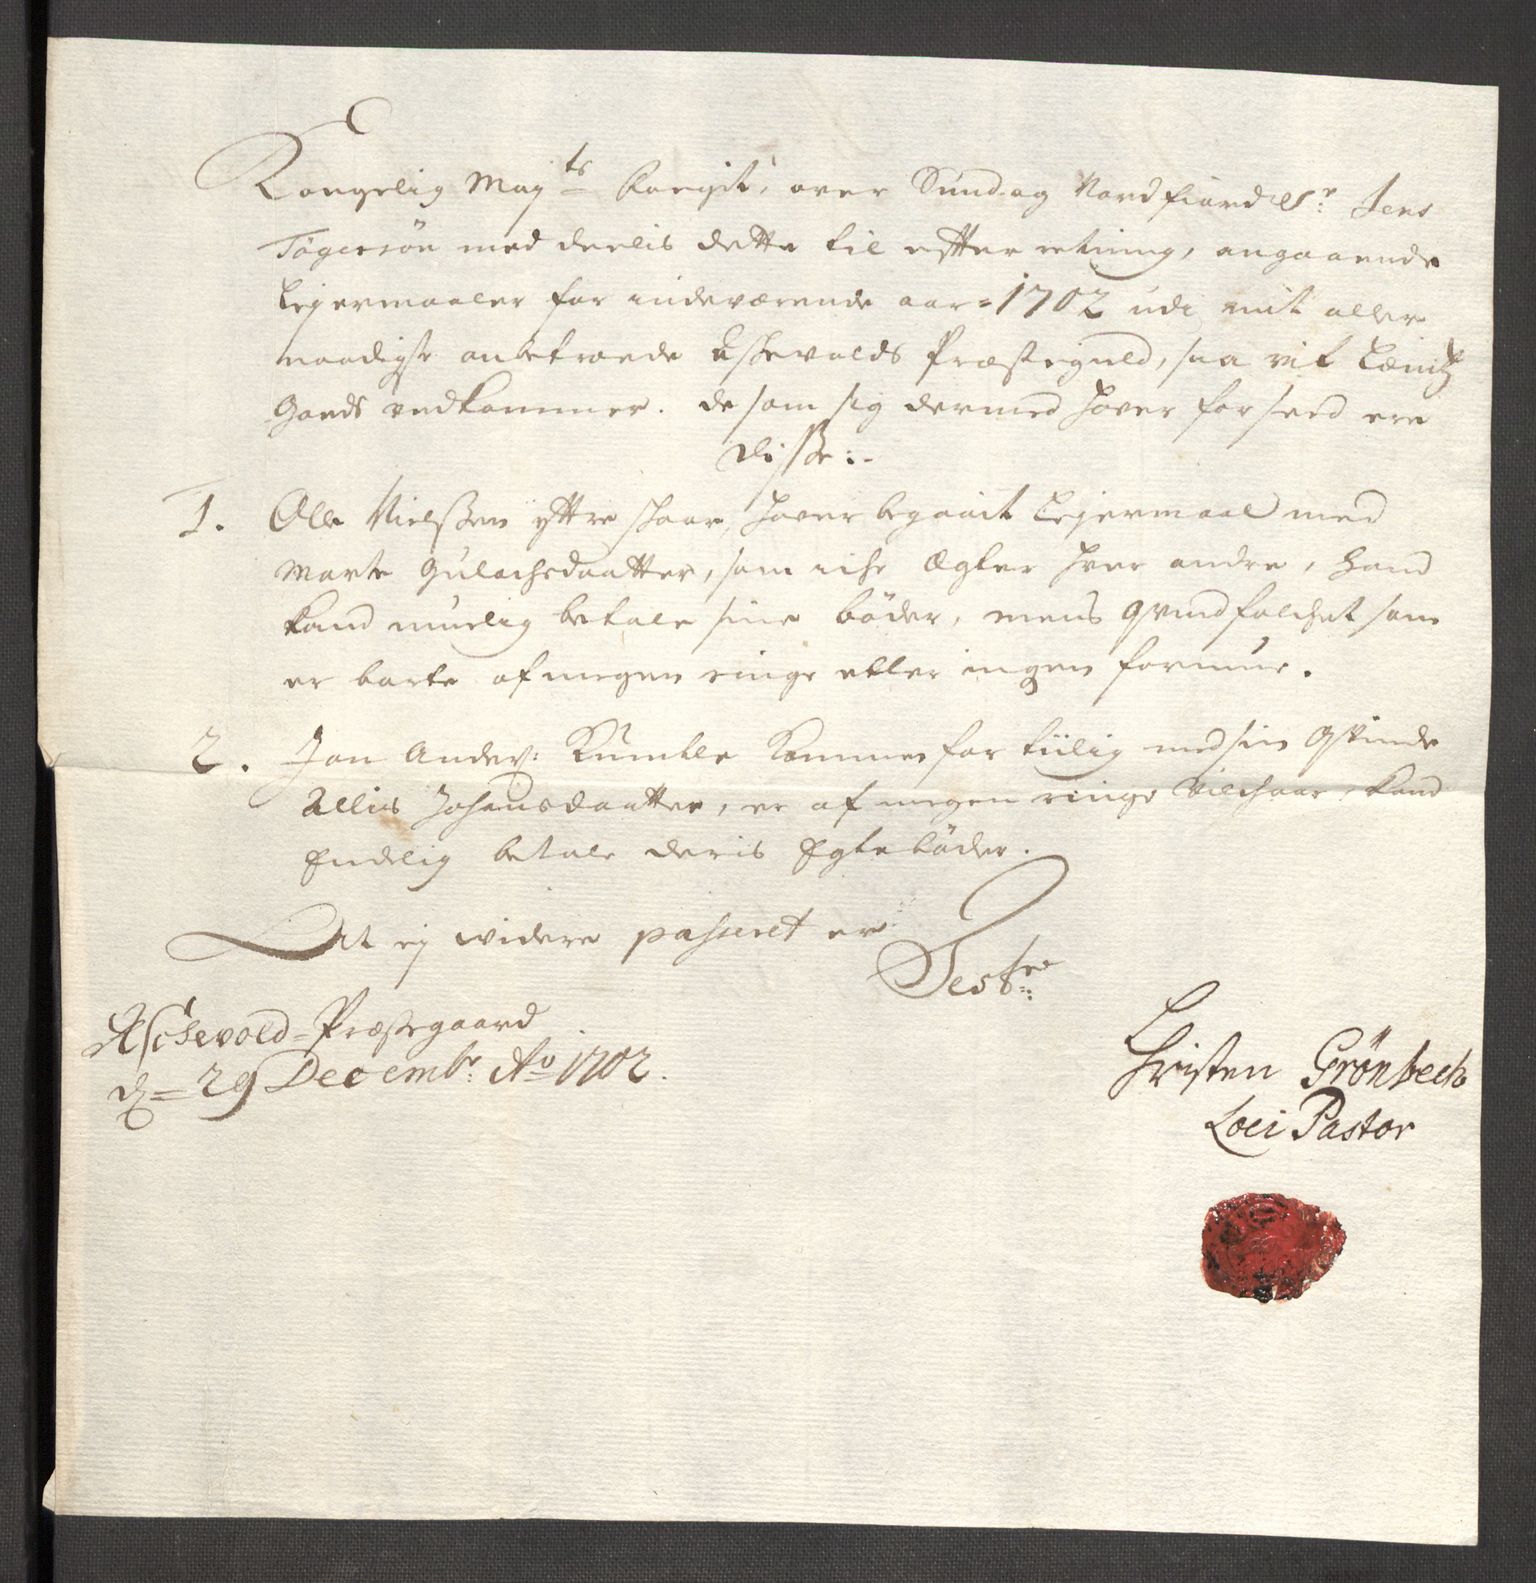 Kongelig May:ts Fougit, over Sund- og Nordfiord Sr: Jens
Tøgersøn meddeelis dette til efterretning, angaaende
Leyermaaler for indeværende aar 1702 udi mit aller
naadigst anbetroede Aschevolds Præstegield, saa vit Læns
Goeds vedkommer. De som sig dermed hover forseed ere
disse:
1. Olle Nielssen yttre Schaar, hover begaait Leyermaal med
Marte Gulachsdaatter, som iche Ægter hver andre, Hand
kand muelig betale sine bøder, mens Qvindfolchet som
er borte af megen ringe eller ingen formue.
2. Jon Anders: Kumble kommen for tiilig med sin Qvinde
Allis Johansdaatter, er af megen ringe Vilchaar, kand
Endelig betale deris Egte bøder.
At ej widere passeret er
Test:
Aschevold-Præstegaard
d= 29 Decembr: Ao 1702.
Christen Grønbech
Loci Pastor